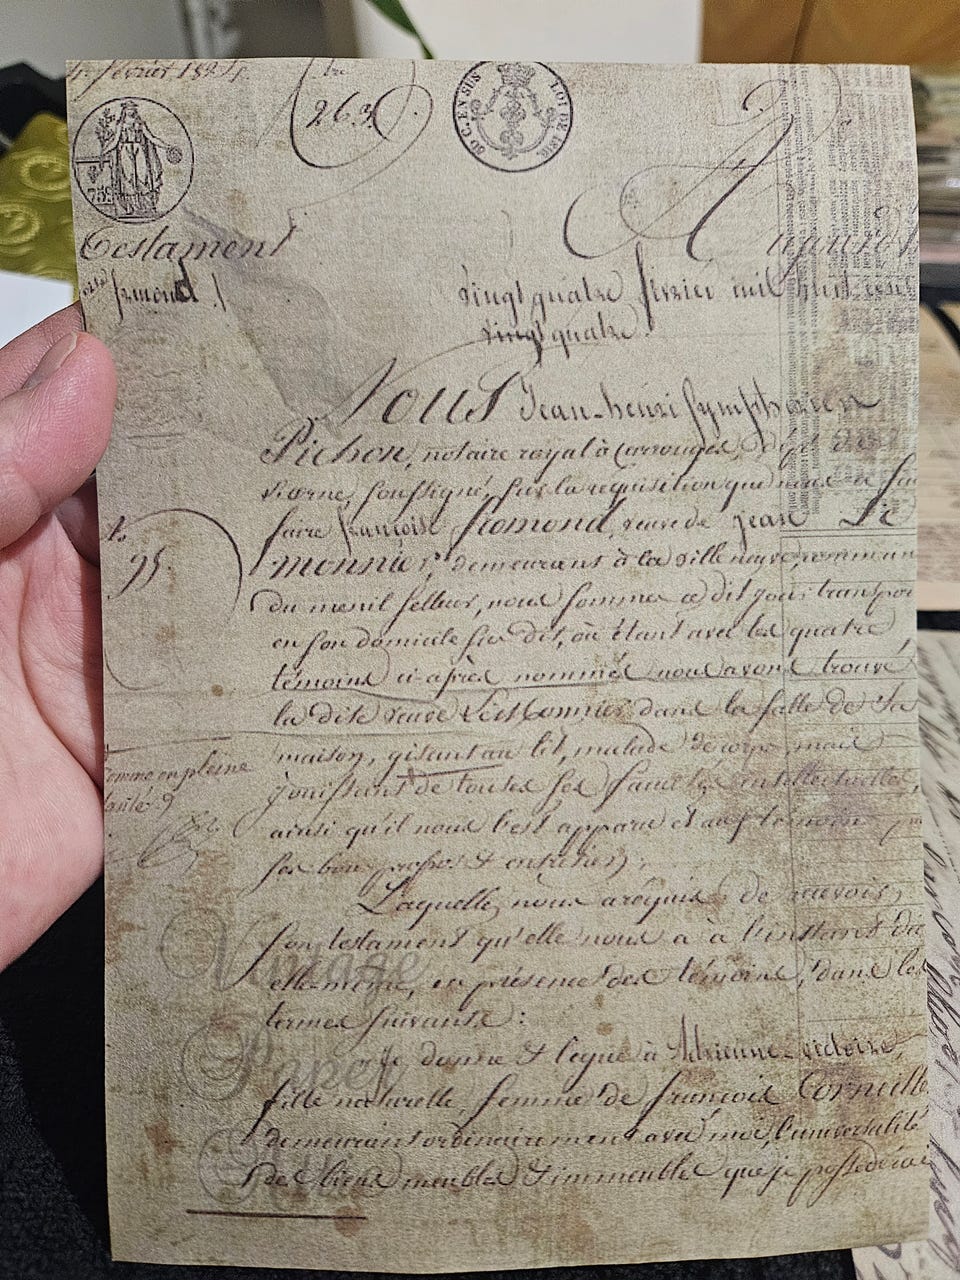 février
263
50 C. EN SUS LOI DE 1816
75
Testament
fromond
Aujourd'h
vingt quatre février mil huit cent
vingt quatre.
Nous Jean-henri Symphorien
Pichon, notaire royal à Carrouges, dépt de
L'orne, soussigné, sur la requisition que nous a fait
faire françoise fromond, veuve de jean Le
monnier, demeurant à la ville neuve, commun
du menil selleur, nous sommes ce dit jour transpor
en son domicile sus dit, où étant avec les quatre
No
95.
témoins ci-après nommés nous avons trouvé
la dite veuve Lemonnier dans la salle de sa
maison, gisant au lit, malade de corps mais
comme en pleine
santé
jouissant de toutes ses facultés intellectuelles,
ainsi qu'il nous l'est apparu et aux temoins
ses bons propos & entretiens;
Laquelle, nous a requis de recevoir,
son testament qu'elle nous a à l'instant di
elle-même, en présence des témoins, dans les
termes suivants:
Je donne & legue à Adrienne-victoire,
fille naturelle, femme de françois Corneille
demeurant ordinairement avec moi, l'universalité
des biens meubles & immeubles que je possederai
Vintage
Paper